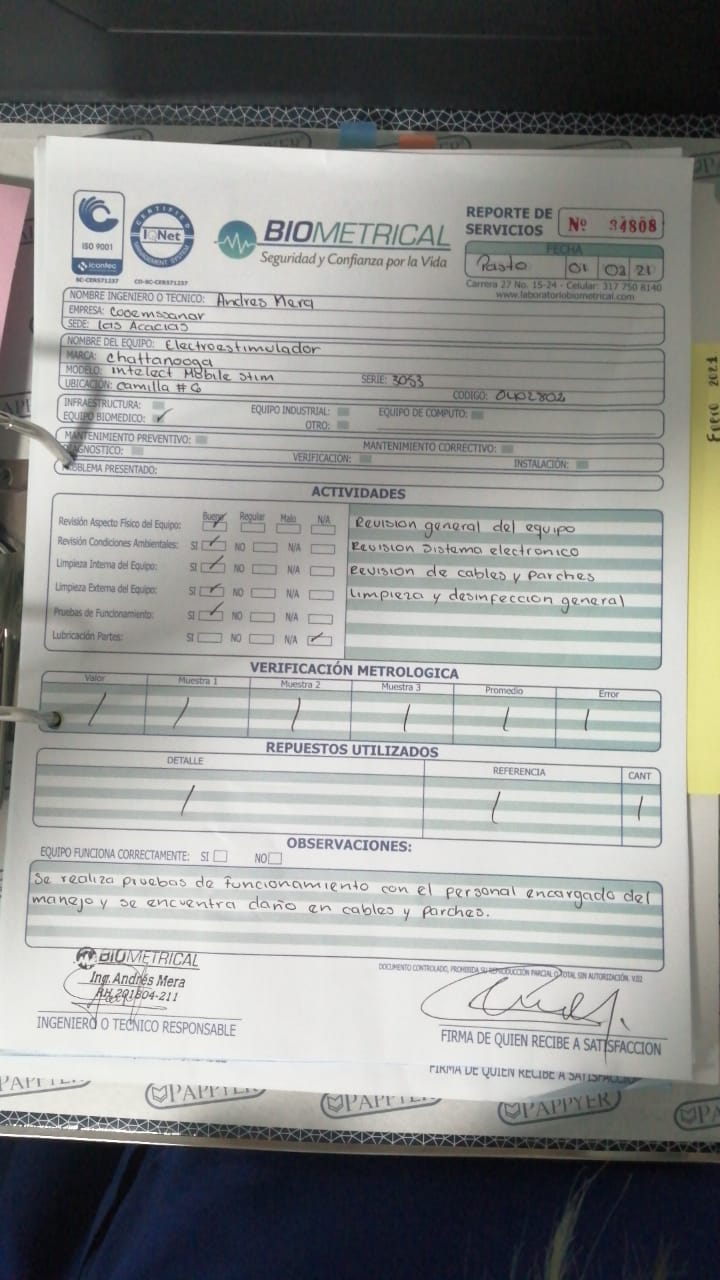 ISO 9001
icontec
SC-CER571237
CERTIFIED
IQNet
MANAGEMENT SYSTEM
CO-SC-CER571237
BIOMETRICAL
Seguridad y Confianza por la Vida
REPORTE DE SERVICIOS
Nº 34808
FECHA
Pasto 01 02 21
Carrera 27 No. 15-24 - Celular: 317 750 8140
www.laboratoriobiometrical.com
NOMBRE INGENIERO O TECNICO: Andres Mera
EMPRESA: Cooemssanar
SEDE: las Acacias
NOMBRE DEL EQUIPO: Electroestimulador
MARCA: Chattanooga
MODELO: Intelect Mobile Stim SERIE: 3053
UBICACIÓN: Camilla # 6 CODIGO: 0402802
INFRAESTRUCTURA: EQUIPO INDUSTRIAL: EQUIPO DE COMPUTO:
EQUIPO BIOMEDICO: ✓ OTRO:
MANTENIMIENTO PREVENTIVO: MANTENIMIENTO CORRECTIVO:
DIAGNOSTICO: VERIFICACIÓN: INSTALACIÓN:
PROBLEMA PRESENTADO:
ACTIVIDADES
Bueno Regular Malo N/A
Revisión Aspecto Físico del Equipo: ✓
Revisión Condiciones Ambientales: SI ✓ NO N/A
Limpieza Interna del Equipo: SI ✓ NO N/A
Limpieza Externa del Equipo: SI ✓ NO N/A
Pruebas de Funcionamiento: SI ✓ NO N/A
Lubricación Partes: SI NO N/A ✓
Revision general del equipo
Revision Sistema electronico
Revision de cables y parches
Limpieza y desinfeccion general
VERIFICACIÓN METROLOGICA
Valor Muestra 1 Muestra 2 Muestra 3 Promedio Error
/ / / / / /
REPUESTOS UTILIZADOS
DETALLE REFERENCIA CANT
/ / /
OBSERVACIONES:
EQUIPO FUNCIONA CORRECTAMENTE: SI NO
Se realiza pruebas de funcionamiento con el personal encargado del
manejo y se encuentra daño en cables y parches.
BIOMETRICAL
Ing. Andrés Mera
RH 201804-211
INGENIERO O TECNICO RESPONSABLE
DOCUMENTO CONTROLADO, PROHIBIDA SU REPRODUCCIÓN PARCIAL O TOTAL SIN AUTORIZACIÓN. V.02
FIRMA DE QUIEN RECIBE A SATISFACCION
FIRMA DE QUIEN RECIBE A SATISFACCION
PAPPYER PAPPYER PAPPYER PAPPYER